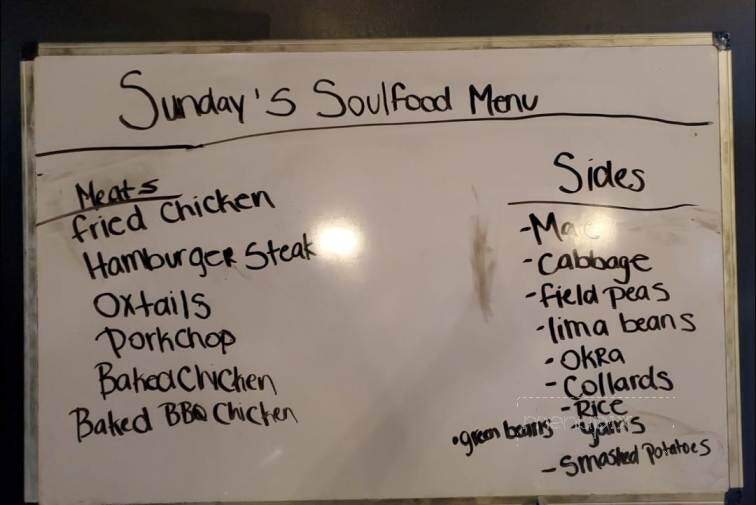 Sunday's Soulfood Menu
Meats
fried Chicken
Hamburger Steak
Oxtails
Porkchop
Baked Chicken
Baked BBQ Chicken
Sides
- Mac
- Cabbage
- field peas
- lima beans
- OKRa
- Collards
- Rice
- yams
• green beans
- Smashed Potatoes